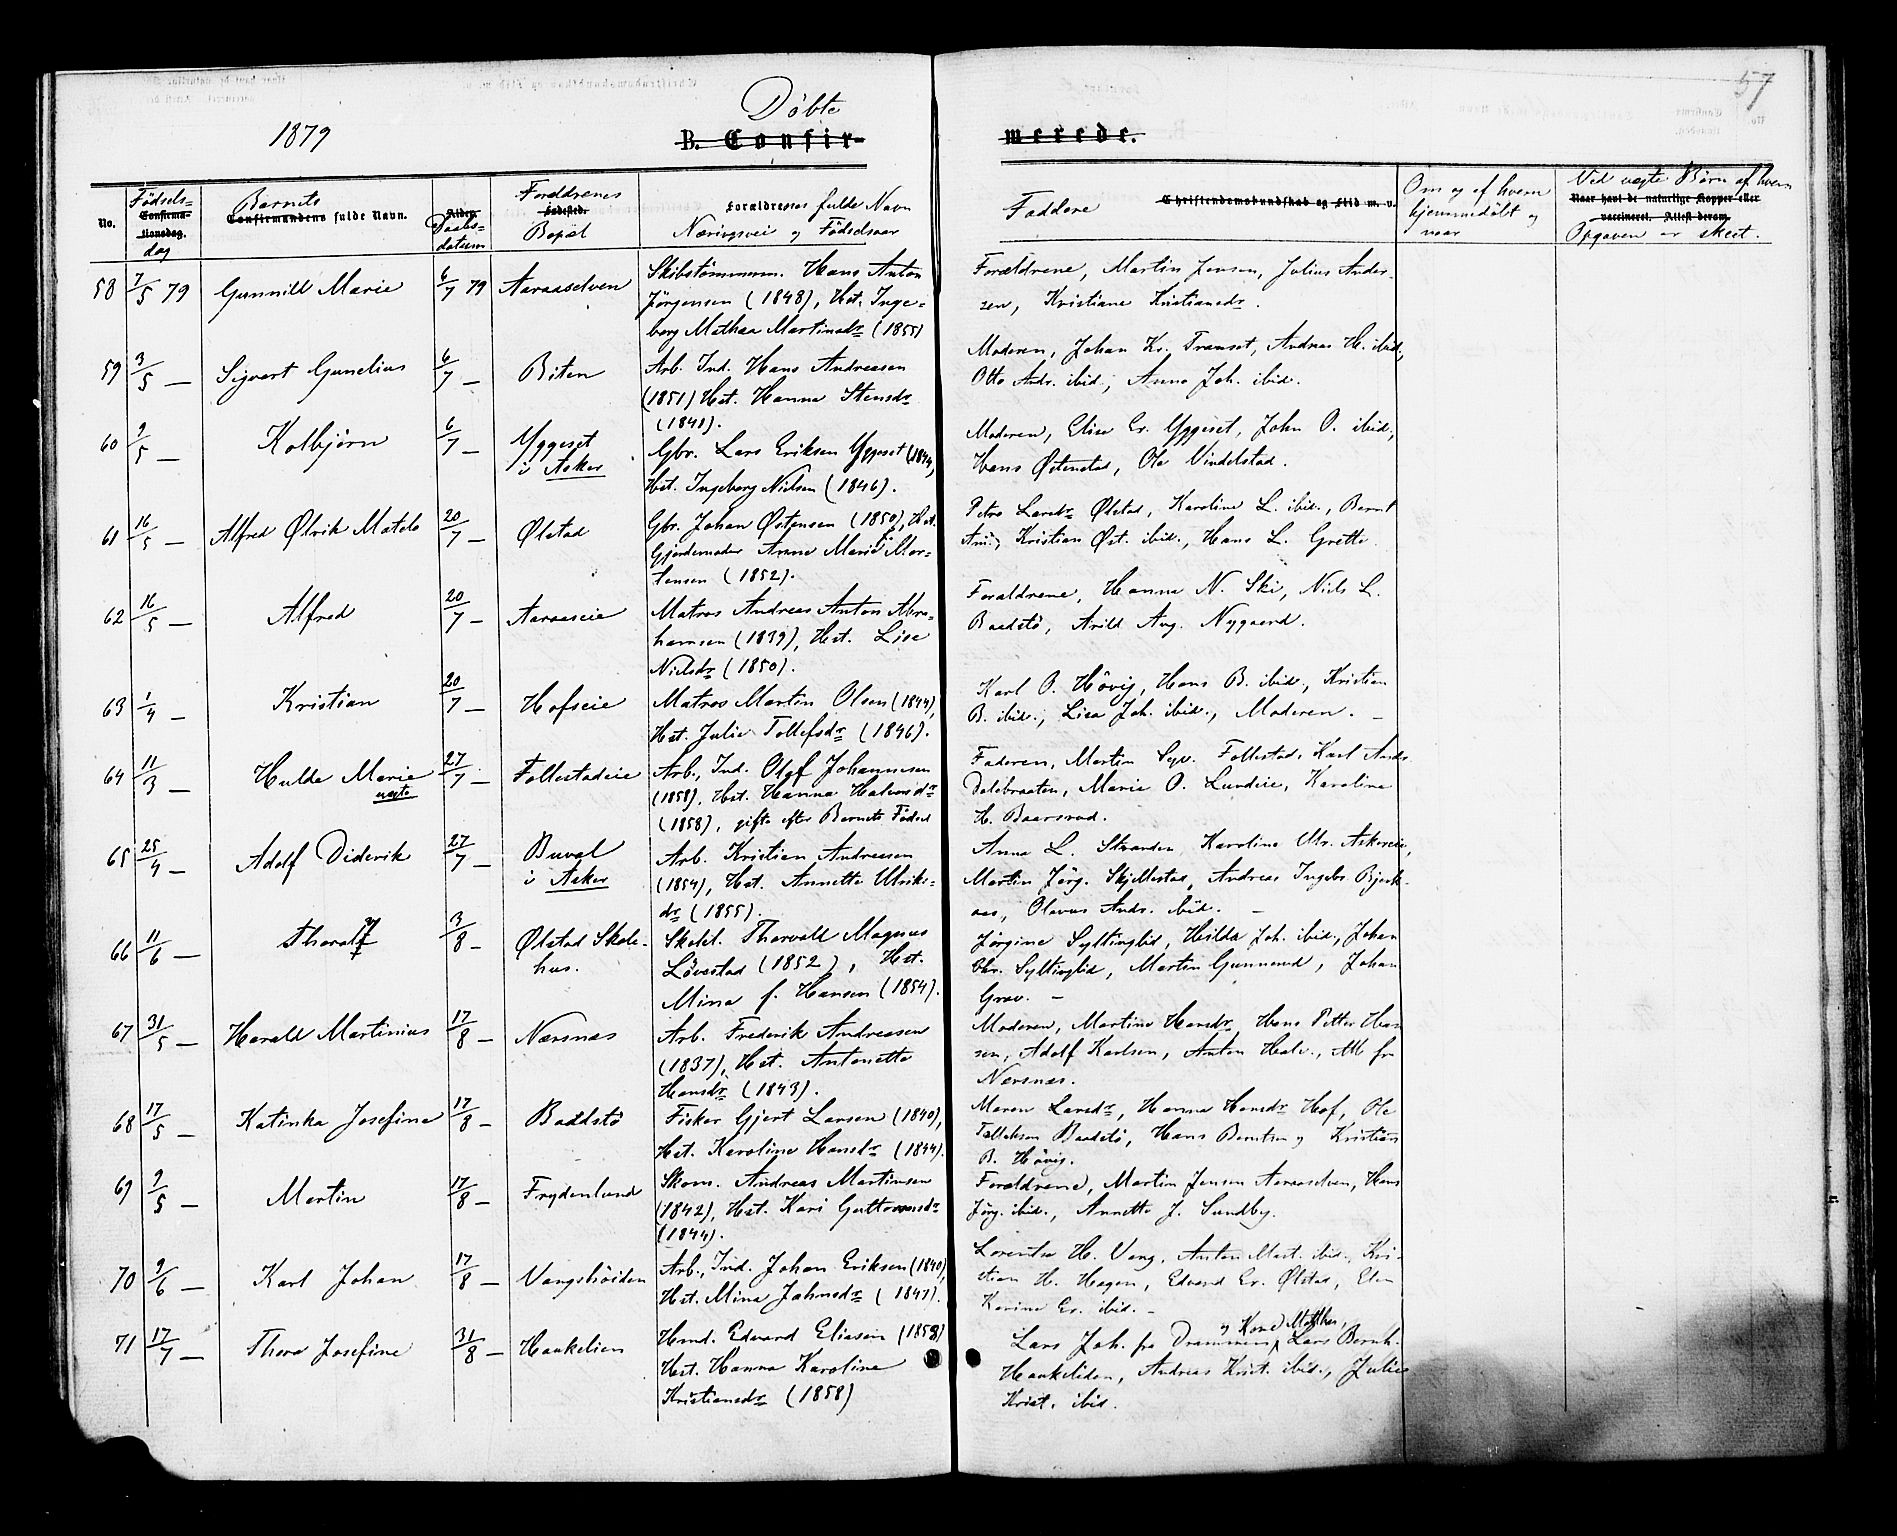 57
Döbte
1879
B. Confirmerede.
No.
Födsels-
Confirma-
tionsdag.
dag
Barnets
Confirmandens fulde Navn.
Alder.
Daabs-
datum
Forældrenes
Fødested.
Bopæl
Forældrenes fulde Navn
Næringsvei og Födselsaar
Faddere
Christendomskundskab og Flid m. v.
Om og af hvem
hjemmedöbt og
naar
Ved uægte Börn af hvem
Naar havt de naturlige Kopper eller
vaccineret. Attest derom.
Opgaven er skeet.
58 7/5 79 Gunnild Marie 6/7 79 Aaraaselven
Skibstömmerm. Hans Anton
Jörgensen (1848), Hst. Inge-
borg Mathea Martinsdr (1855)
Forældrene, Martin Jensen, Julius Ander-
sen, Kristiane Kristiansdr.
59 3/5 — Sigvart Gunelius 6/7 — Biten
Arb. Ind. Hans Andreasen
(1851) Hst. Hanna Stensdr
(1841).
Moderen, Johan Kr. Transet, Andreas H. ibid.,
Otto Andr. ibid., Anna Joh. ibid.
60 9/5 — Kolbjörn 6/7 — Yggeset
i Asker
Gbr. Lars Eriksen Yggeset (1844),
Hst. Ingeborg Nielsen (1846).
Moderen, Elise Er. Yggeset, John O. ibid.,
Hans Østenstad, Ole Vindelstad.
61 16/5 — Alfred Ølrik 20/7 — Ølstad
Gbr. Johan Østensen (1850), Hst.
Gjordemoder Anne Marie Mor-
tensen (1852).
Petra Larsdr Ølstad, Karoline L. ibid., Bernt
Kristian Øst. ibid., Hans L. Grette.
62 16/5 — Alfred 20/7 — Aaraaseie
Matros Andreas Anton Abra-
hamsen (1839), Hst. Lise
Nielsdr (1850).
Forældrene, Hanna N. Ski, Niels L.
Baadstö, Arild Aug. Nygaard.
63 1/4 — Kristian 20/7 — Hofseie
Matros Martin Olsen (1844),
Hst. Julie Tollefsdr (1846).
Karl O. Hövig, Hans B. ibid., Kristian
B. ibid., Lisa Joh. ibid., Moderen. —
64 11/3 — Hulda Marie
uægte
27/7 — Follestadeie
Arb., Ind. Olaf Johannesen
(1858), Hst. Hanna Halvorsdr
(1858), gifte efter Barnets Födsel
Faderen, Martin Syv. Follestad, Karl Andr.
Dalsbraaten, Marie O. Lundeie, Karoline
H. Baarsrud.
65 25/4 — Adolf Diderik 27/7 — Buval
i Asker
Arb. Kristian Andreasen
(1854), Hst. Annette Ulriks-
dr (1855).
Anna L. Stranden, Karoline Ulr. Askereie,
Martin Jörg. Skjellestad, Andreas Ingebr. Bjerk-
aas, Olavus Andr. ibid. —
66 11/6 — Tharalf 3/8 — Ølstad Skole-
hus.
Skolel. Thorvald Magnus
Lövestad (1852), Hst.
Mina f. Hansen (1854).
Jörgine Syltinglid, Hilda Joh. ibid., Johan
Chr. Syltinglid, Martin Gunnerud, Johan
Grav. —
67 31/5 — Harald Martinius 17/8 — Nærsnæs
Arb. Frederik Andreasen
(1837), Hst. Antonette
Hansdr (1843).
Moderen, Martine Hansdr, Hans Petter Han-
sen, Adolf Karlsen, Anton Halv., Alle fra
Nærsnæs.
68 17/5 — Katinka Josefine 17/8 — Baadstö
Fisker Gjert Larsen (1840),
Hst. Karoline Hansdr (1844).
Maren Larsdr, Hanna Hansdr Hof, Ole
Tollefsen Baadstö, Hans Berntsen og Kristian
B. Hövig.
69 9/5 — Martin 17/8 — Frydenlund
Skom. Andreas Martinsen
(1842), Hst. Kari Guttormsdr
(1844).
Forældrene, Martin Jensen Aaraaselven, Hans
Jörg. ibid., Annette J. Sundby.
70 9/6 — Karl Johan 17/8 — Vangshöiden
Arb., Ind. Johan Eriksen (1840),
Hst. Mina Jahnsdr (1847).
Lorentse H. Vang, Anton Mart. ibid., Kri-
stian H. Hagen, Edvard Er. Ølstad, Elen
Karine Er. ibid. —
71 17/7 — Thora Josefine 31/8 — Haakelien
Hmd. Edvard Eliasen (1858)
Hst. Hanna Karoline
Kristiansdr (1858)
og Kone Mathea,
Lars Joh. fra Drammen, Lars Bernh.
Haakeliden, Andreas Krist. ibid., Julius
Krist. ibid.